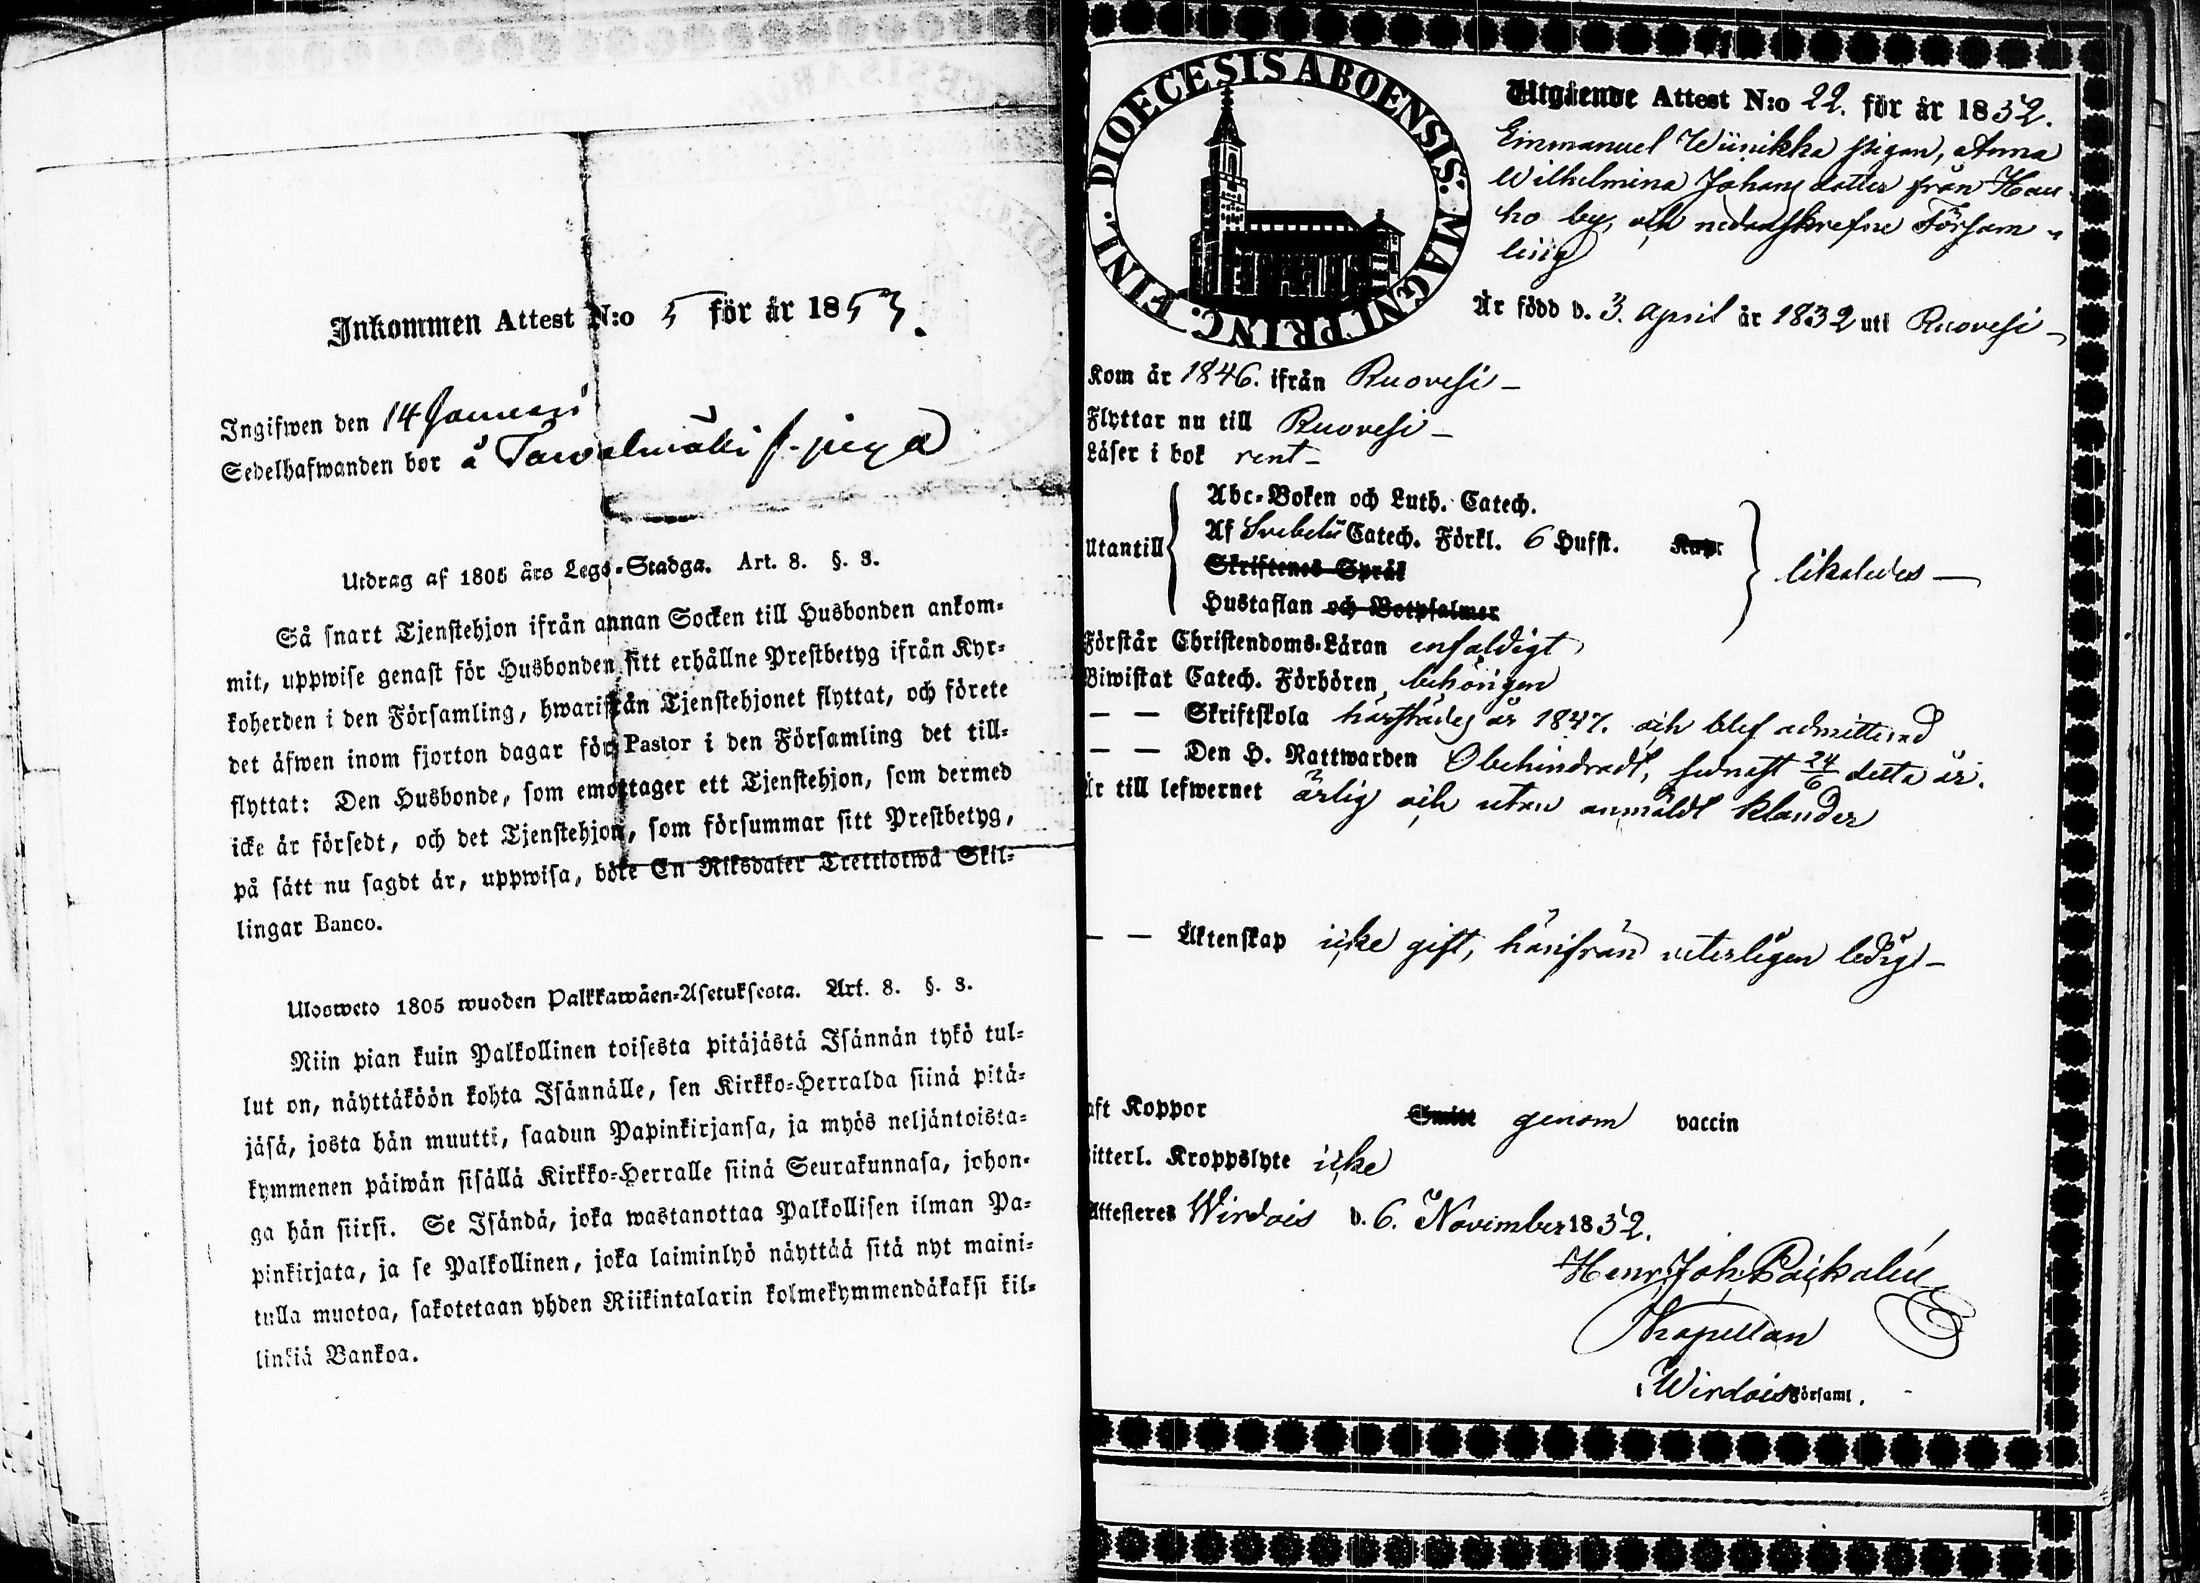 Inkommen Attest N:o 5 för år 1853.
Ingifwen den 14 Januari
Sedelhafwanden bor å Tawalmäki s. piga
Utdrag af 1805 års Lego-Stadga. Art. 8. §. 3.
Så snart Tjenstehjon ifrån annan Socken till Husbonden ankom-
mit, uppwise genast för Husbonden sitt erhållne Prestbetyg ifrån Kyr-
koherden i den Församling, hwarifrån Tjenstehjonet flyttat, och förete
det äfwen inom fjorton dagar för Pastor i den Församling det till-
flyttat: Den Husbonde, som emottager ett Tjenstehjon, som dermed
icke är försedt, och det Tjenstehjon, som försummar sitt Prestbetyg,
på sätt nu sagdt är, uppwisa, böte En Riksdaler Trettiotwå Skil-
lingar Banco.
Ulosweto 1805 wuoden Palkkawäen-Asetuksesta. Art. 8. §. 3.
Niin pian kuin Palkollinen toisesta pitäjästä Isännän tykö tul-
lut on, näyttäköön kohta Isännälle, sen Kirkko-Herralda siinä pitä-
jäsä, josta hän muutti, saadun Papinkirjansa, ja myös neljäntoista-
kymmenen päiwän sisällä Kirkko-Herralle siinä Seurakunnasa, johon-
ga hän siirsi. Se Isändä, joka wastanottaa Palkollisen ilman Pa-
pinkirjata, ja se Palkollinen, joka laiminlyö näyttää sitä nyt maini-
tulla muotoa, sakotetaan yhden Riikintalarin kolmekymmendäkaksi kil-
linkiä Bankoa.
DIOECESIS ABOENSIS. MAGNI PRINC. FINL.
Utgående Attest N:o 22. för år 1852.
Emmanuel Wünikka pigan, Anna
Wilhelmina Johansdotter från Hau-
ho by, och nedanskrefne Försam-
ling
Är född d. 3. April år 1832 uti Ruovesi
Kom år 1846. ifrån Ruovesi
Flyttar nu till Ruovesi
Läser i bok rent
Utantill Abc-Boken och Luth. Catech.
Af Svebelii Catech. Förkl. 6 Hufst. Kap.
Skriftenes Språk
Hustaflan och Botpsalmer
likaledes
Förstår Christendoms-Läran enfaldigt
Biwistat Catech. Förhören, behörigen
— — Skriftskola härstädes år 1847. och blef admitterad
— — Den H. Nattwarden Obehindradt, senast 24/6 detta år.
Är till lefwernet ärlig och utan anmäldt klander
— — Äktenskap icke gift, härifrån veterligen ledig
aft Koppor Smitt genom vaccin
itterl. Kroppslyte icke
Attesteres Wirdois d. 6. November 1852.
Henr. Joh. Paikalén
Kapellan
i Wirdois Församl.